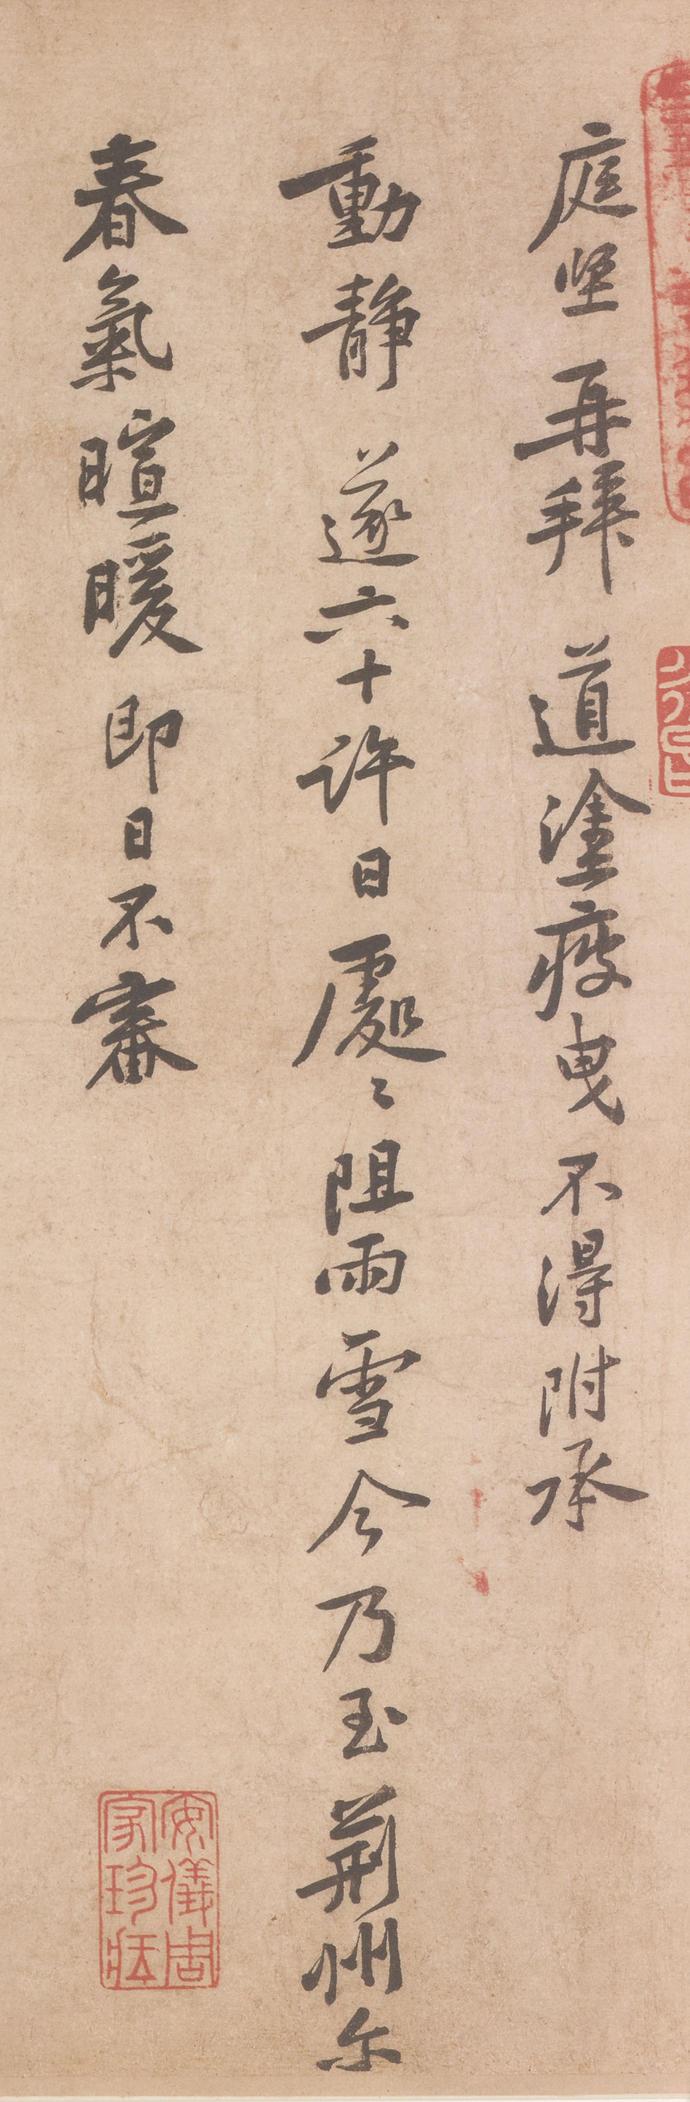 庭坚再拜道塗疲曳不得附承
動靜遂六十許日處〻阻雨雪今乃至荆州尔
春氣暄暖即日不審
安儀周家珍藏